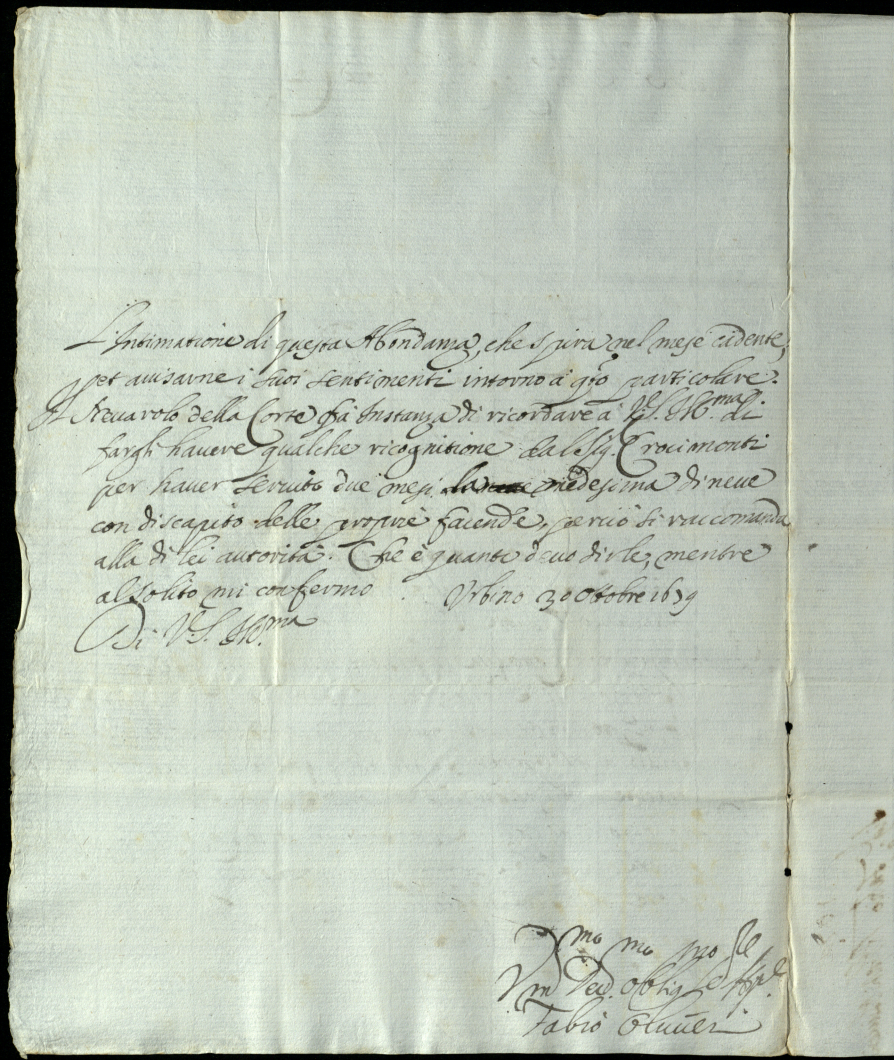 L'Intimatione di questa Abondanza, che spira nel mese cadente,
et auisarne i suoi sentimenti intorno à q̃sto particolare.
Il Neuarolo della Corte fà Instanza di ricordare à V.S. Ill.ma di
fargli hauere qualche ricognitione dal Sig. Crocimonti
per hauer seruito due mesi la medesima di neue
con discapito delle proprie facende, perciò si raccomanda
alla di lei autorità. Che è quanto deuo dirle, mentre
al solito mi confermo Vrbino 30 Ottobre 1679
Di V.S. Ill.ma
Vm Deu. Oblig. Se
Fabio Oliuieri